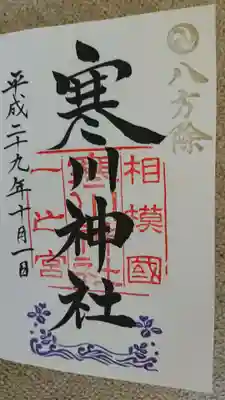 八方除
寒川神社
相模國
一之宮
平成二十九年十月一日